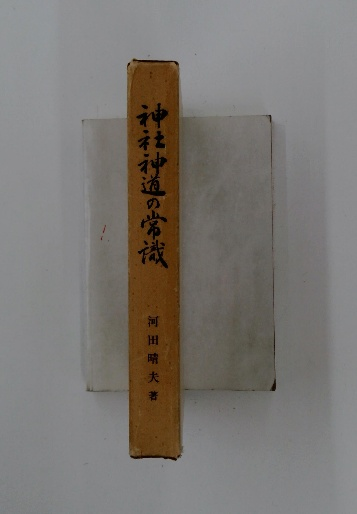 神社神道の常識
河田晴夫著